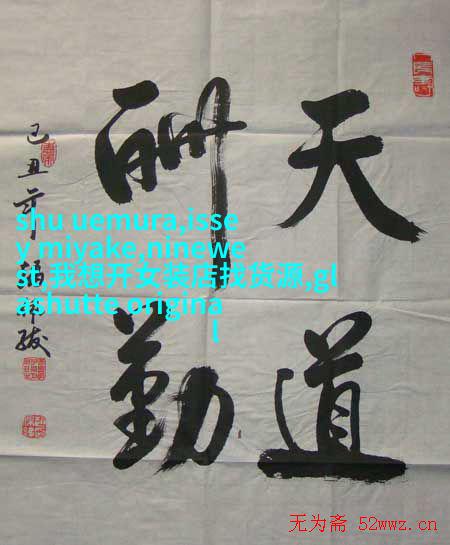 天道
酬勤
己丑
shu uemura,isse
y miyake,ninewe
st,我想开女装店找货源,gl
ashutte origina
l
无为斋 52wwz.cn